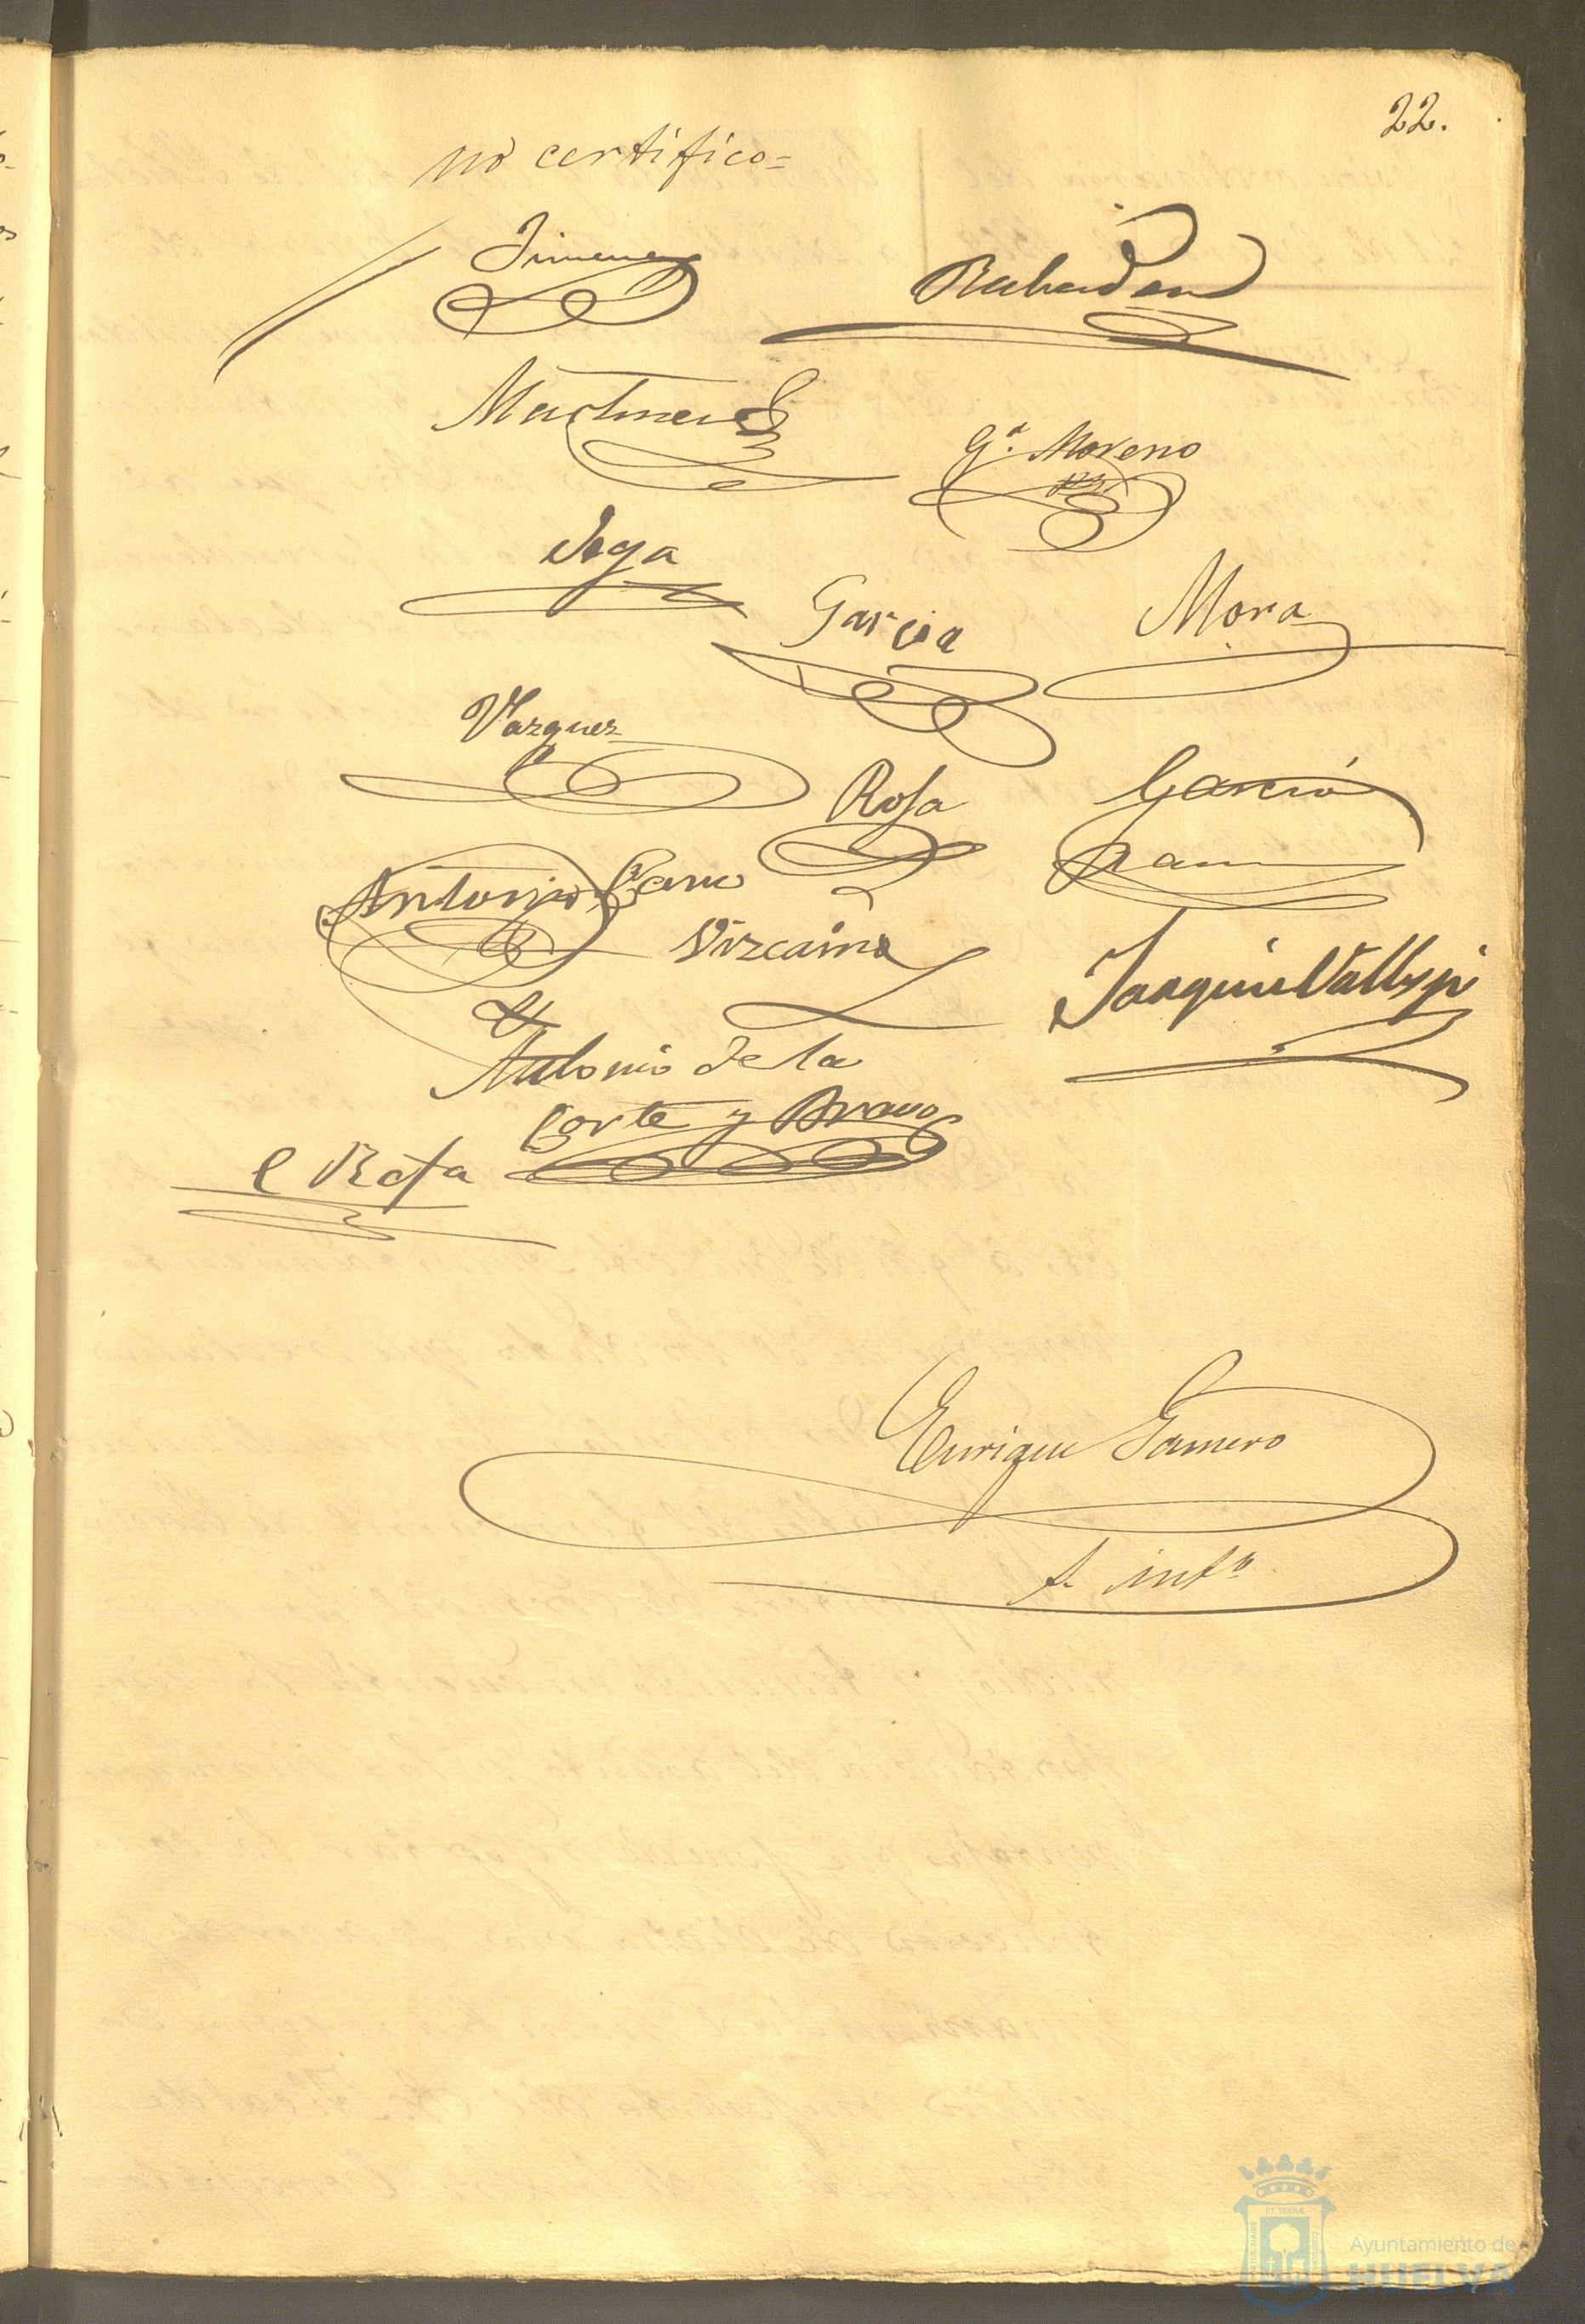 22.
no certifico=
Jimenez
Martinez
Gª. Moreno
Vega
Garcia
Mora
Vazquez
Rosa
Garcia
Ram
Antonio Cano
Vizcaino
Joaquin Vallespi
Antonio de la
Corte y Bravo
C Rosa
Enrique Gamero
S. intº
Ayuntamiento de
HUELVA